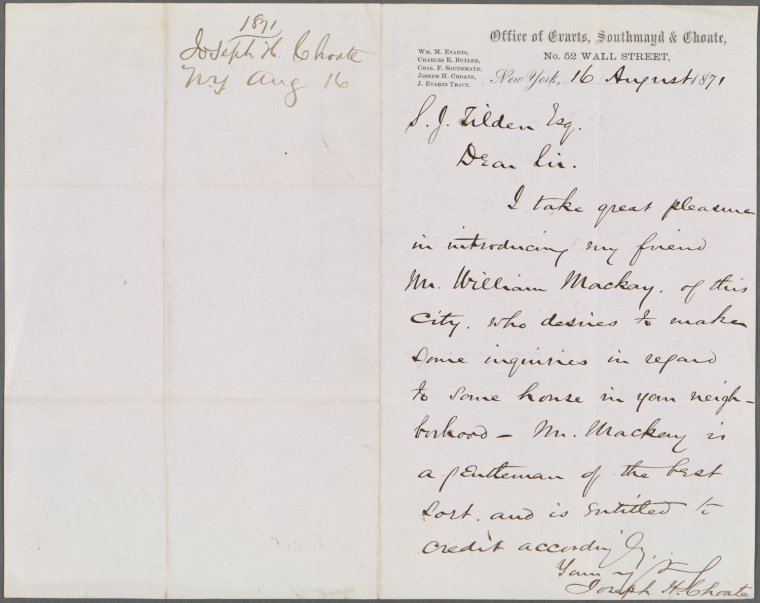 1871
Joseph H Choate
NY Aug 16
Office of Evarts, Southmayd & Choate,
No. 52 WALL STREET,
WM. M. EVARTS,
CHARLES E. BUTLER,
CHAS. F. SOUTHMAYD,
JOSEPH H. CHOATE,
J. EVARTS TRACY.
New York, 16 August 1871
S. J. Tilden Esq.
Dear Sir.
I take great pleasure
in introducing my friend
Mr. William Mackay. of this
City. who desires to make
some inquiries in regard
to some house in your neigh-
borhood - Mr. Mackay is
a gentleman of the best
sort. and is entitled to
credit accordingly.
Joseph H. Choate